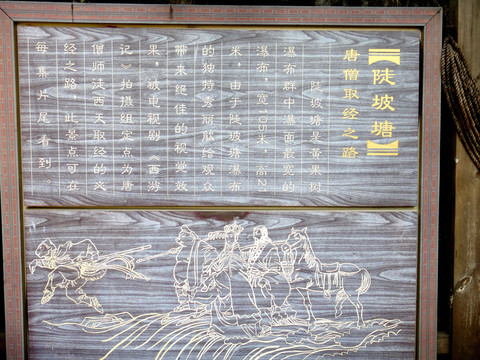 【陡坡塘】
唐僧取经之路
陡坡塘是黄果树
瀑布群中瀑面最宽的
瀑布，宽105米，高21
米，由于陡坡塘瀑布
的独特秀丽献给观众
带来绝佳的视觉效
果，被电视剧《西游
记》拍摄组定点为唐
僧师徒西天取经的必
经之路，此景点可在
每集片尾看到。